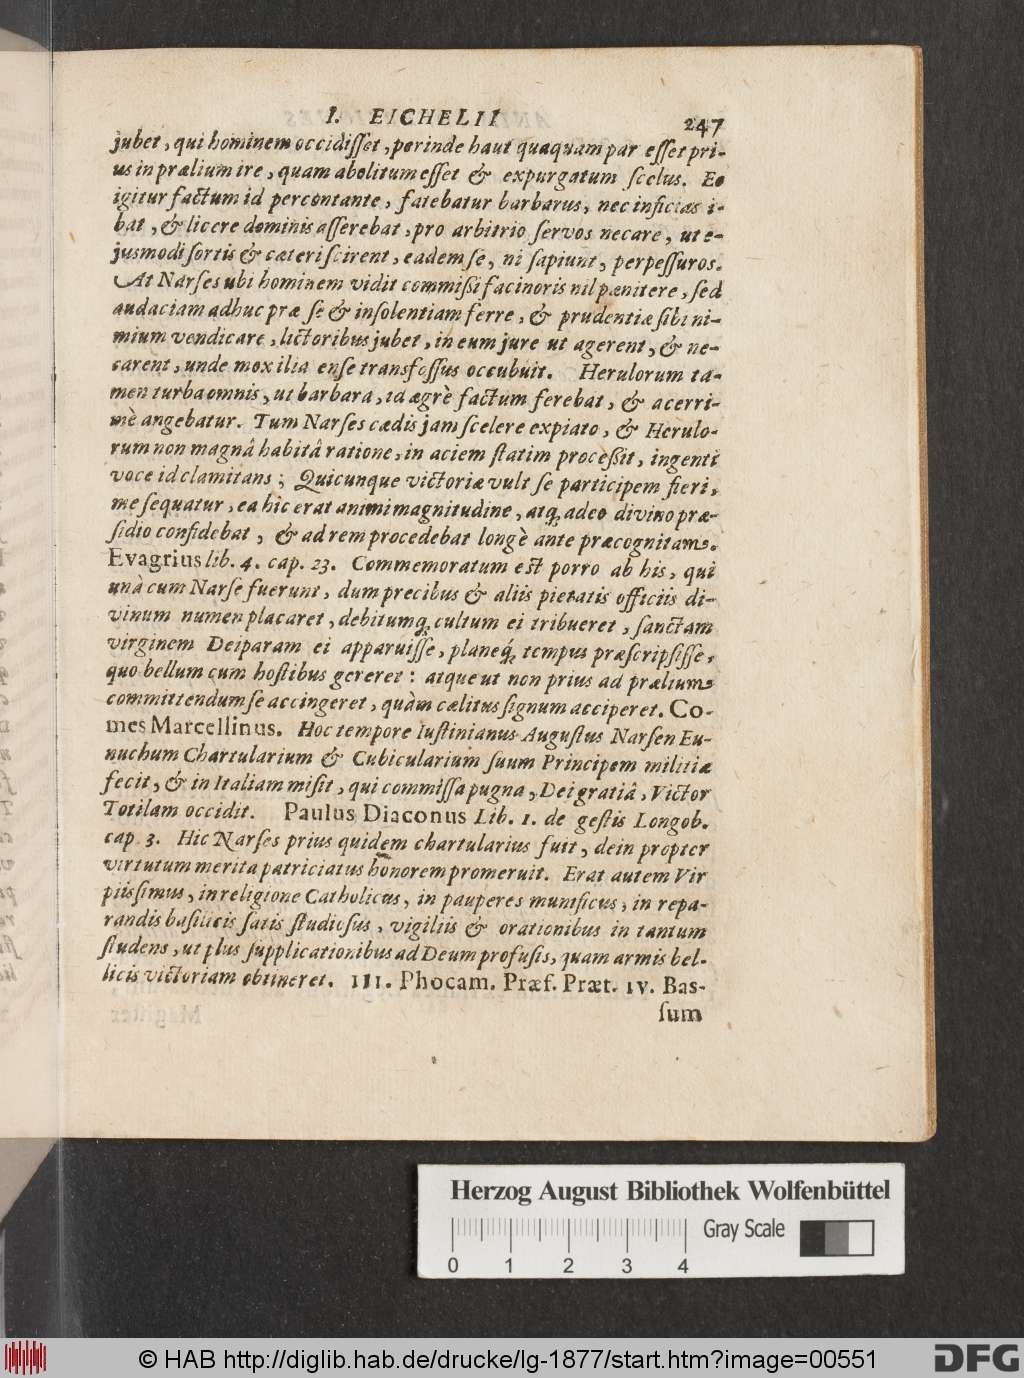 I. EICHELII 247
jubet, qui hominem occidiſſet, perinde haut quaquam par eſſet pri-
us in prælium ire, quam abolitum eſſet & expurgatum ſcelus. Eo
igitur factum id percontante, fatebatur barbarus, nec inficias i-
bat, & licere dominis aſſerebat, pro arbitrio ſervos necare, ut e-
jusmodi ſortis & cæteri ſcirent, eadem ſe, ni ſapiunt, perpeſſuros.
At Narſes ubi hominem vidit commiſſi facinoris nil pænitere, ſed
audaciam adhuc præ ſe & inſolentiam ferre, & prudentiæ ſibi ni-
mium vendicare, lictoribus jubet, in eum jure ut agerent, & ne-
carent, unde mox ilia enſe transfoſſus occubuit. Herulorum ta-
men turba omnis, ut barbara, id ægrè factum ferebat, & acerri-
mè angebatur. Tum Narſes cædis jam ſcelere expiato, & Herulo-
rum non magnâ habitâ ratione, in aciem ſtatim proceſſit, ingenti
voce id clamitans; Quicunque victoriæ vult ſe participem fieri,
me ſequatur, ea hic erat animi magnitudine, atq; adeo divino præ-
ſidio confidebat, & ad rem procedebat longè ante præcognitam.
Evagrius lib. 4. cap. 23. Commemoratum eſt porro ab his, qui
unà cum Narſe fuerunt, dum precibus & aliis pietatis officiis di-
vinum numen placaret, debitumq; cultum ei tribueret, ſanctam
virginem Deiparam ei apparuiſſe, planeq́; tempus præſcripſiſſe,
quo bellum cum hoſtibus gereret: atque ut non prius ad prælium
committendum ſe accingeret, quàm cælitus ſignum acciperet. Co-
mes Marcellinus. Hoc tempore Iuſtinianus Auguſtus Narſen Eu-
nuchum Chartularium & Cubicularium ſuum Principem militiæ
fecit, & in Italiam miſit, qui commiſſa pugna, Dei gratiâ, Victor
Totilam occidit. Paulus Diaconus Lib. 1. de geſtis Longob.
cap. 3. Hic Narſes prius quidem chartularius fuit, dein propter
virtutum merita patriciatus honorem promeruit. Erat autem Vir
piiſſimus, in religione Catholicus, in pauperes munificus, in repa-
randis baſilicis ſatis ſtudioſus, vigiliis & orationibus in tantum
ſtudens, ut plus ſupplicationibus ad Deum profuſis, quam armis bel-
licis victoriam obtineret. III. Phocam. Præf. Præt. IV. Bas-
ſum
Herzog August Bibliothek Wolfenbüttel
Gray Scale
0 1 2 3 4
© HAB http://diglib.hab.de/drucke/lg-1877/start.htm?image=00551
DFG